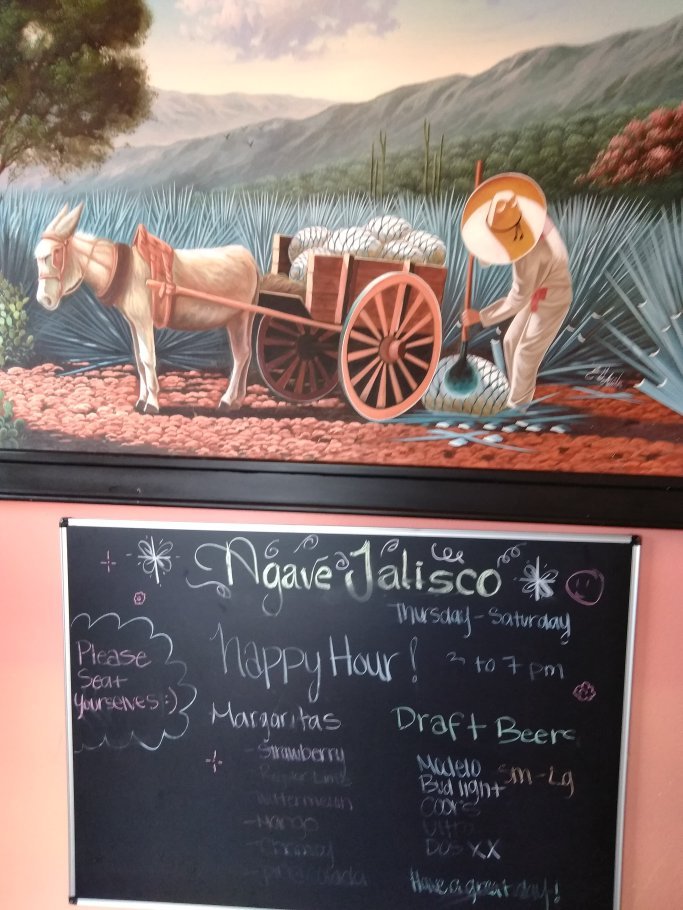 Agave Jalisco
Thursday - Saturday
Happy Hour! 3 to 7 pm
Please
Seat
yourselves :)
Margaritas
- Strawberry
Regular Lime
Watermelon
- Mango
- Chamoy
- piña colada
Draft Beers
Modelo
Bud light
Coors
Ultra
Dos XX
Sm - Lg
Have a great day!